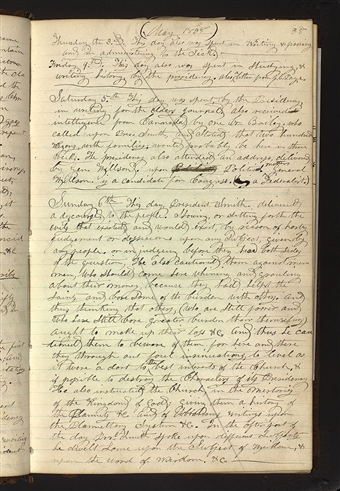 May 1838
38
Thursday the 3d. This day also was spent in writing &
and in administering to the Sick.
Friday 4th. This day also was spent in Studying, &
writing history by the presidency, also letter
Saturday 5th. This day was spent, by the Presidency
in writing for the Elders Journal, also received
intelligence from Cannada by one Bro Bailey, who
called upon Bro. Smith, and Stated, that two hundred
Wagons, with families, would probably be here in three
weeks. The presidency also attended an address, delivered
by Gen Willson, upon Political matters General
Willson is a candidate for Congress, (a Federalist.)
Sunday 6th. This day, President Smith, delivered
a discourse to the people. Showing, or setting forth the
evils that existed, and would exist, by reason of hasty
judgement or dessisions upon any subject, given by
any people, or in judgeing before they hear both sides
of the question, He also cautioned them against men
men, who should come here whining and growling
about their money, because they had helped the
Saints and bore some of the burden with others. And
thus thinking that others, (who are still poorer and
who have still bore greater burden than themselves)
aught to make up their loss &c. And thus he cau-
tioned them to beware of them for here and there
they through out foul insinuations, to level as
it were a dart to the best interests of the Church, &
if possible to destroy the Characters of its Presidency
He also instructed the Church, in the mistories
of the Kingdom of God; giving them a history of
the Planets &c. and of Abrahams writings upon
the Plannettary System &c. In the after part of
the day Bro. Smith spoke upon different subjects
he dwelt some upon the Subject of Wisdom, &
upon the word of Wisdom. &c.